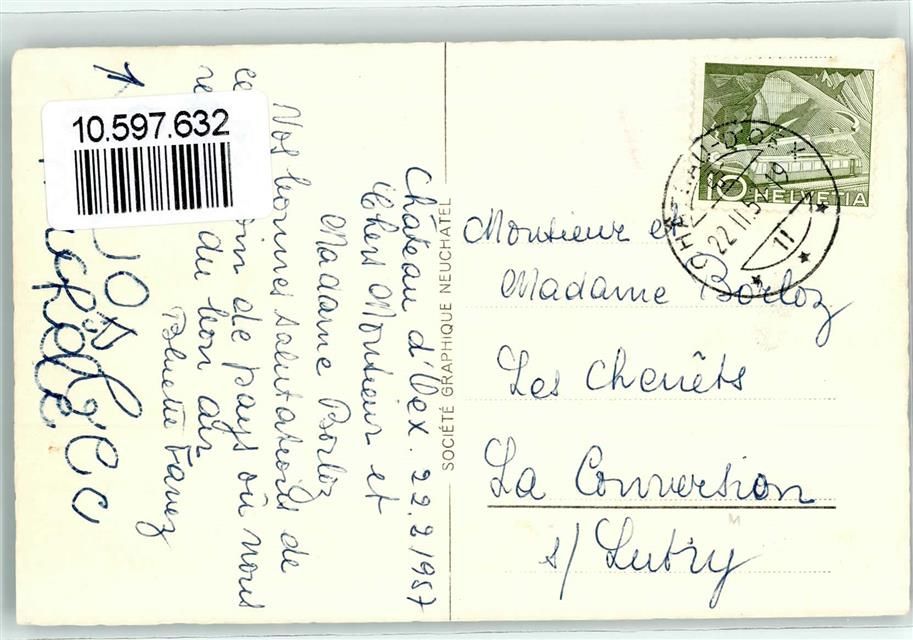 10.597.632
Château d'Oex. 22.2.1957
Chers Monsieur et
Madame Borloz
Vos bonnes salutations de
ce coin de pays où nous
du bon air
SOCIÉTÉ GRAPHIQUE NEUCHÂTEL
10 HELVETIA
CHÂTEAU-D'OEX
22 II 5
11
Monsieur et
Madame Borloz
Les Chenêts
La Conversion
s/ Lutry